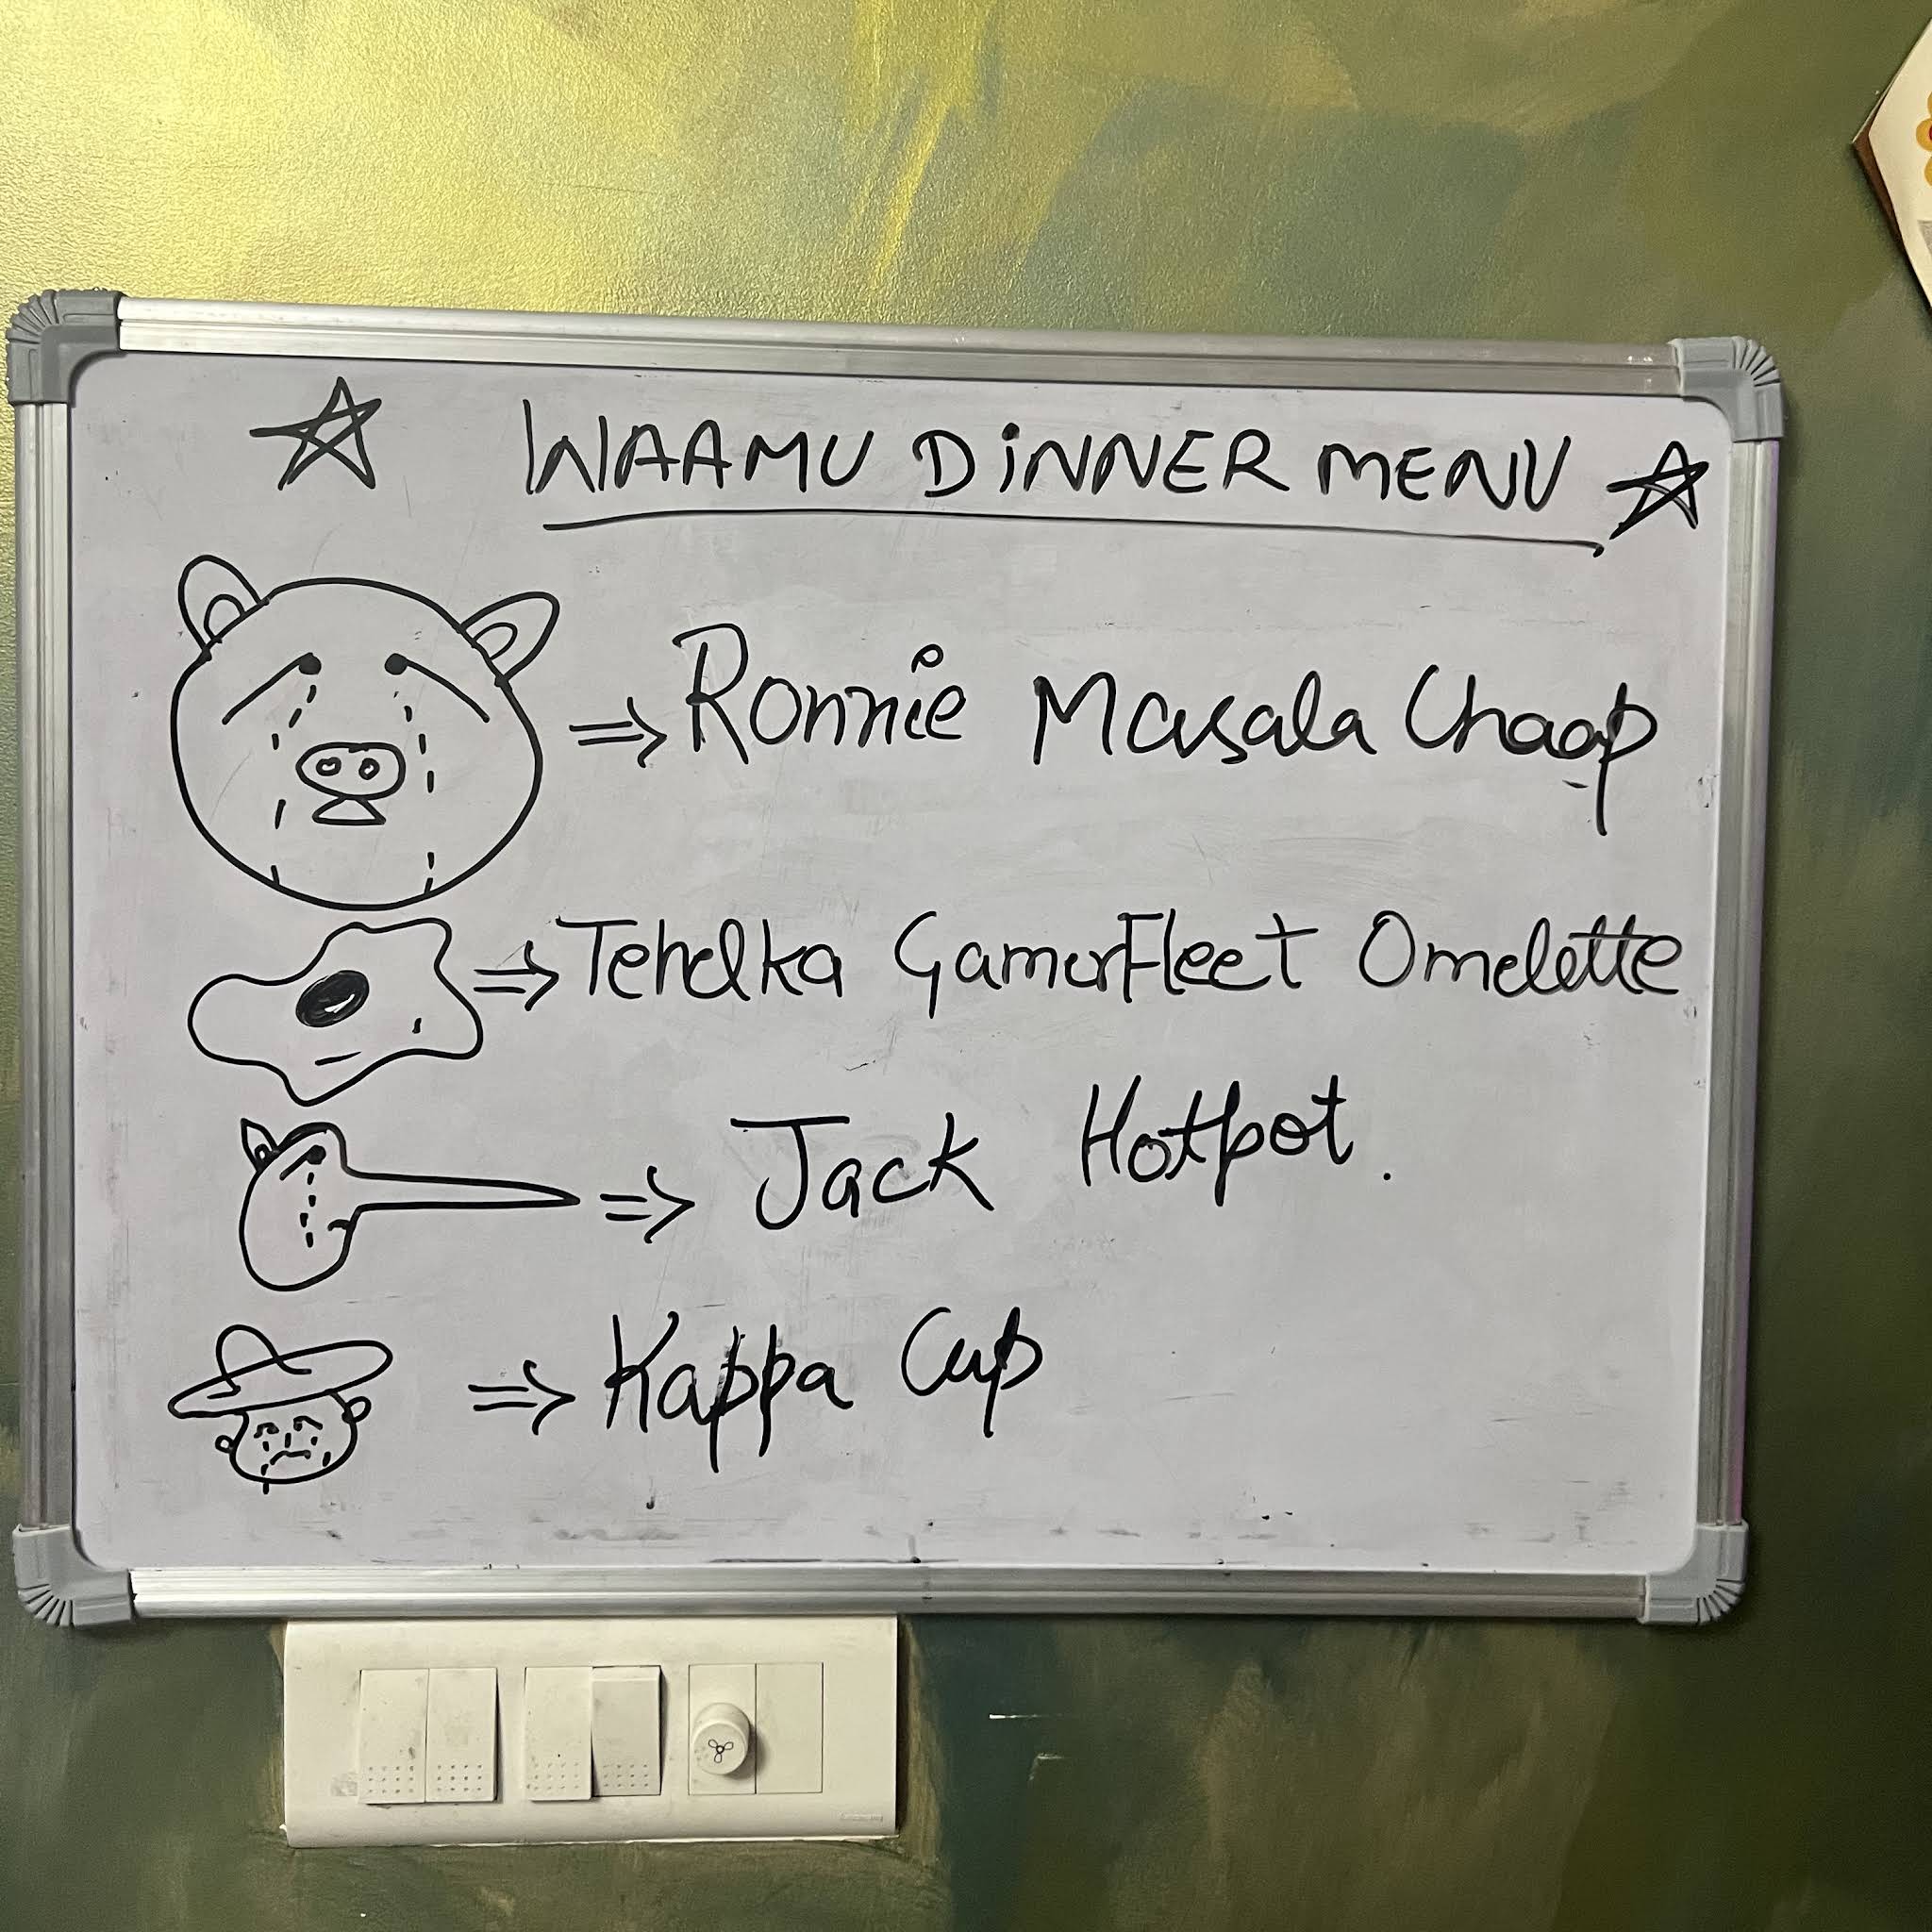 WAAMU DINNER MENU
⇒ Ronnie Masala Chaap
⇒ Tehelka GamerFleet Omelette
⇒ Jack Hotpot.
⇒ Kappa Cup